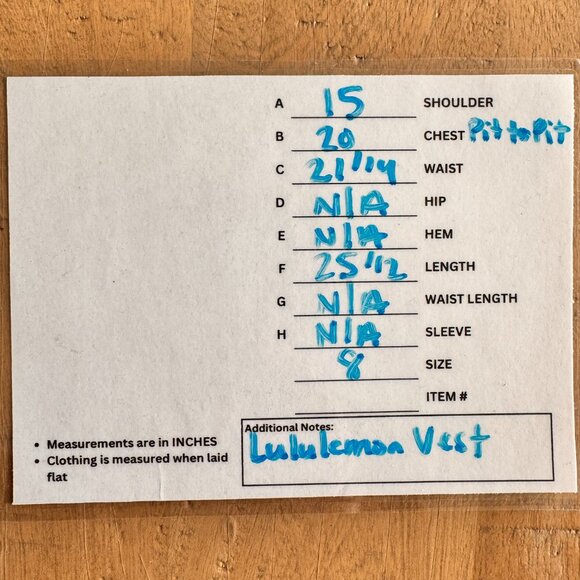 A 15 SHOULDER
B 20 CHEST Pit to Pit
C 21 1/4 WAIST
D N/A HIP
E N/A HEM
F 25 1/2 LENGTH
G N/A WAIST LENGTH
H N/A SLEEVE
8 SIZE
ITEM #
Additional Notes:
Lululemon Vest
• Measurements are in INCHES
• Clothing is measured when laid
flat